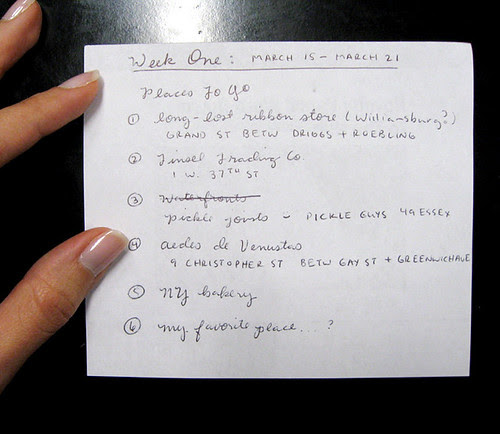 Week One: MARCH 15 – MARCH 21
Places To Go
① long-lost ribbon store (Williamsburg?)
GRAND ST BETW DRIGGS + ROEBLING
② Tinsel Trading Co.
1 W. 37TH ST
③ Waterfronts
pickle joints – PICKLE GUYS 49 ESSEX
④ aedes de Venustas
9 CHRISTOPHER ST BETW GAY ST + GREENWICH AVE
⑤ NY bakery
⑥ my favorite place...?